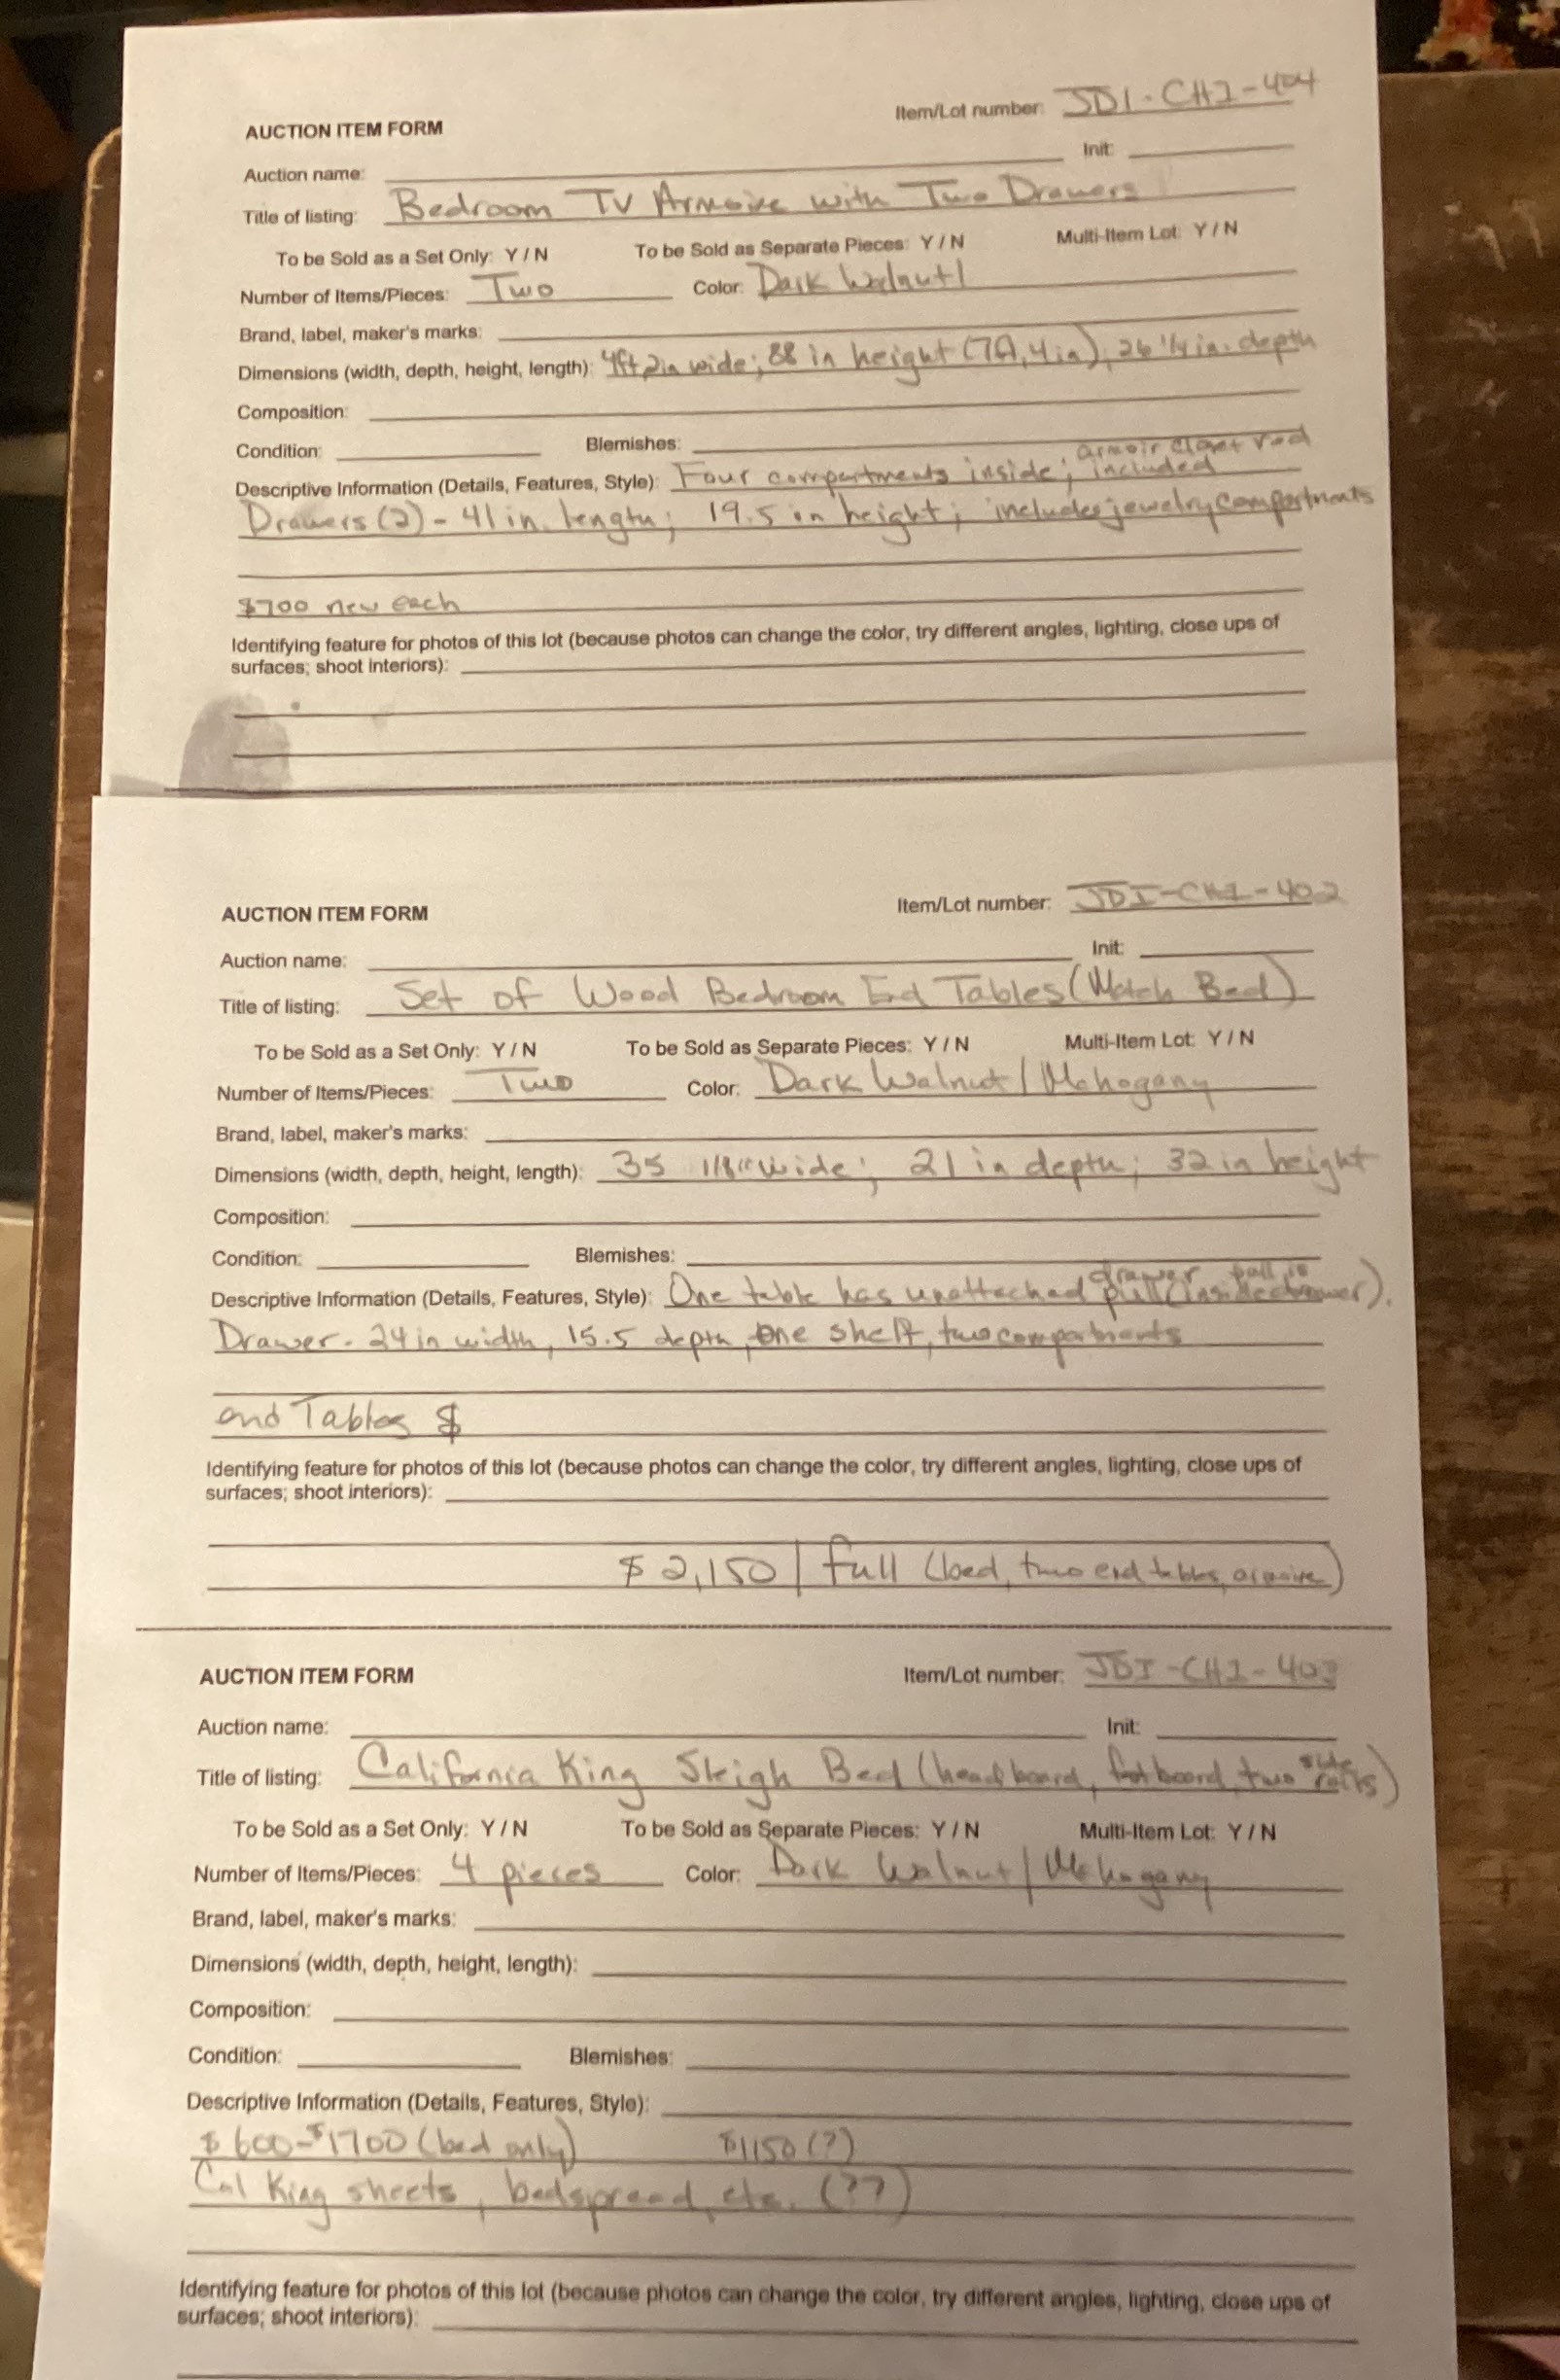 Item/Lot number: JDI-CHI-404
AUCTION ITEM FORM
Auction name: Init:
Title of listing: Bedroom TV Armoire with Two Drawers
To be Sold as a Set Only: Y / N To be Sold as Separate Pieces: Y / N Multi-Item Lot: Y / N
Number of Items/Pieces: Two Color: Dark Walnut/
Brand, label, maker's marks:
Dimensions (width, depth, height, length): 4ft, 2in wide; 88 in height (7ft, 4in), 26 1/4 in. depth
Composition:
Condition: Blemishes:
armoir closet rod
Descriptive Information (Details, Features, Style): Four compartments inside; included
Drawers (2) - 41 in. length; 19.5 in height; includes jewelry compartments
$700 new each
Identifying feature for photos of this lot (because photos can change the color, try different angles, lighting, close ups of
surfaces; shoot interiors):
AUCTION ITEM FORM Item/Lot number: JDI-CHI-402
Auction name: Init:
Title of listing: Set of Wood Bedroom End Tables (Match Bed)
To be Sold as a Set Only: Y / N To be Sold as Separate Pieces: Y / N Multi-Item Lot: Y / N
Number of Items/Pieces: Two Color: Dark Walnut/Mahogany
Brand, label, maker's marks:
Dimensions (width, depth, height, length): 35 1/8" wide; 21 in depth; 32 in height
Composition:
Condition: Blemishes:
drawer pull is
Descriptive Information (Details, Features, Style): One table has unattached pull (inside drawer).
Drawer - 24 in width, 15.5 depth, one shelf, two compartments
end Tables $
Identifying feature for photos of this lot (because photos can change the color, try different angles, lighting, close ups of
surfaces; shoot interiors):
$2,150 / full (bed, two end tables, armoire)
AUCTION ITEM FORM Item/Lot number: JDI-CHI-403
Auction name: Init:
Title of listing: California King Sleigh Bed (headboard, footboard, two side rails)
To be Sold as a Set Only: Y / N To be Sold as Separate Pieces: Y / N Multi-Item Lot: Y / N
Number of Items/Pieces: 4 pieces Color: Dark Walnut/Mahogany
Brand, label, maker's marks:
Dimensions (width, depth, height, length):
Composition:
Condition: Blemishes:
Descriptive Information (Details, Features, Style):
$600-$1700 (bed only) $1150 (?)
Cal King sheets, bedspread, etc. (??)
Identifying feature for photos of this lot (because photos can change the color, try different angles, lighting, close ups of
surfaces; shoot interiors):